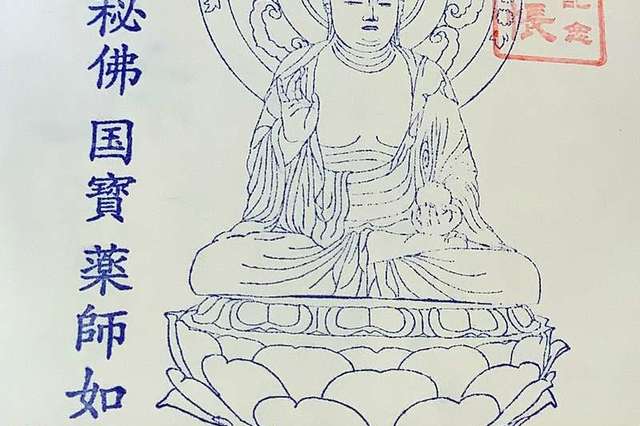 記念
長
秘佛 国寶 薬師如